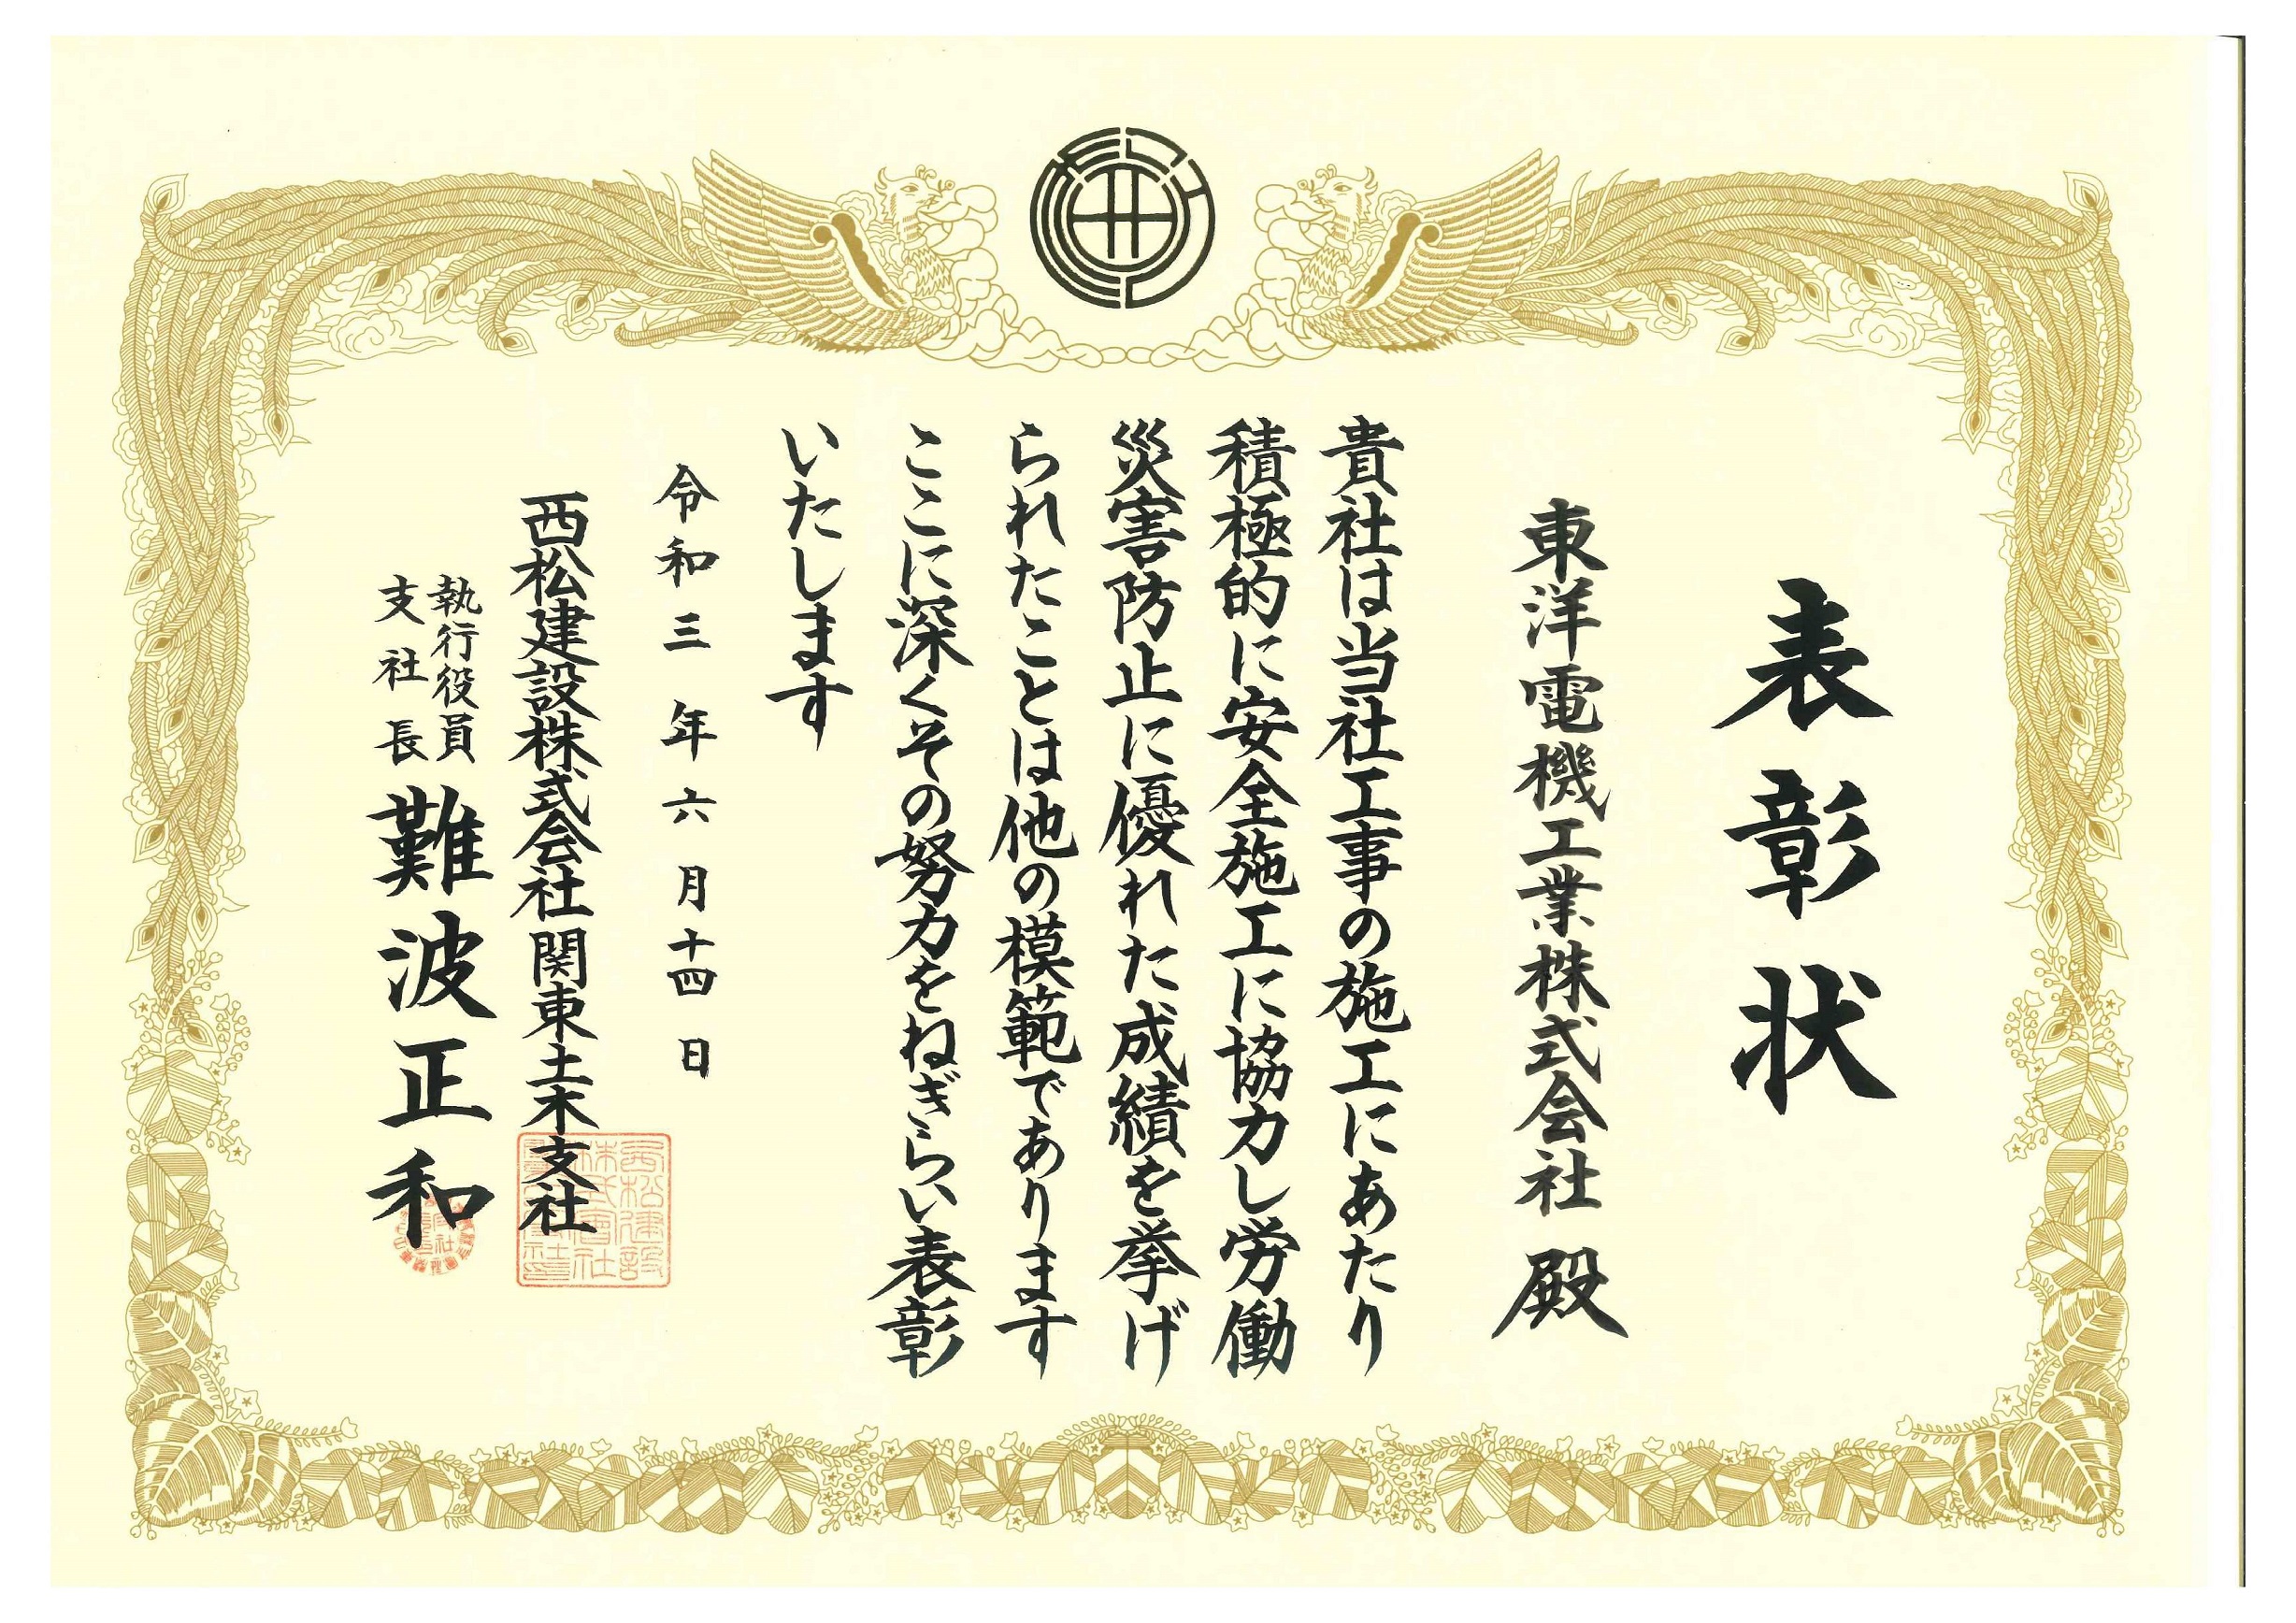 表彰状
東洋電機工業株式会社 殿
貴社は当社工事の施工にあたり
積極的に安全施工に協力し労働
災害防止に優れた成績を挙げ
られたことは他の模範であります
ここに深くその努力をねぎらい表彰
いたします
令和三年六月十四日
西松建設株式会社関東土木支社
執行役員
支社長
難波正和